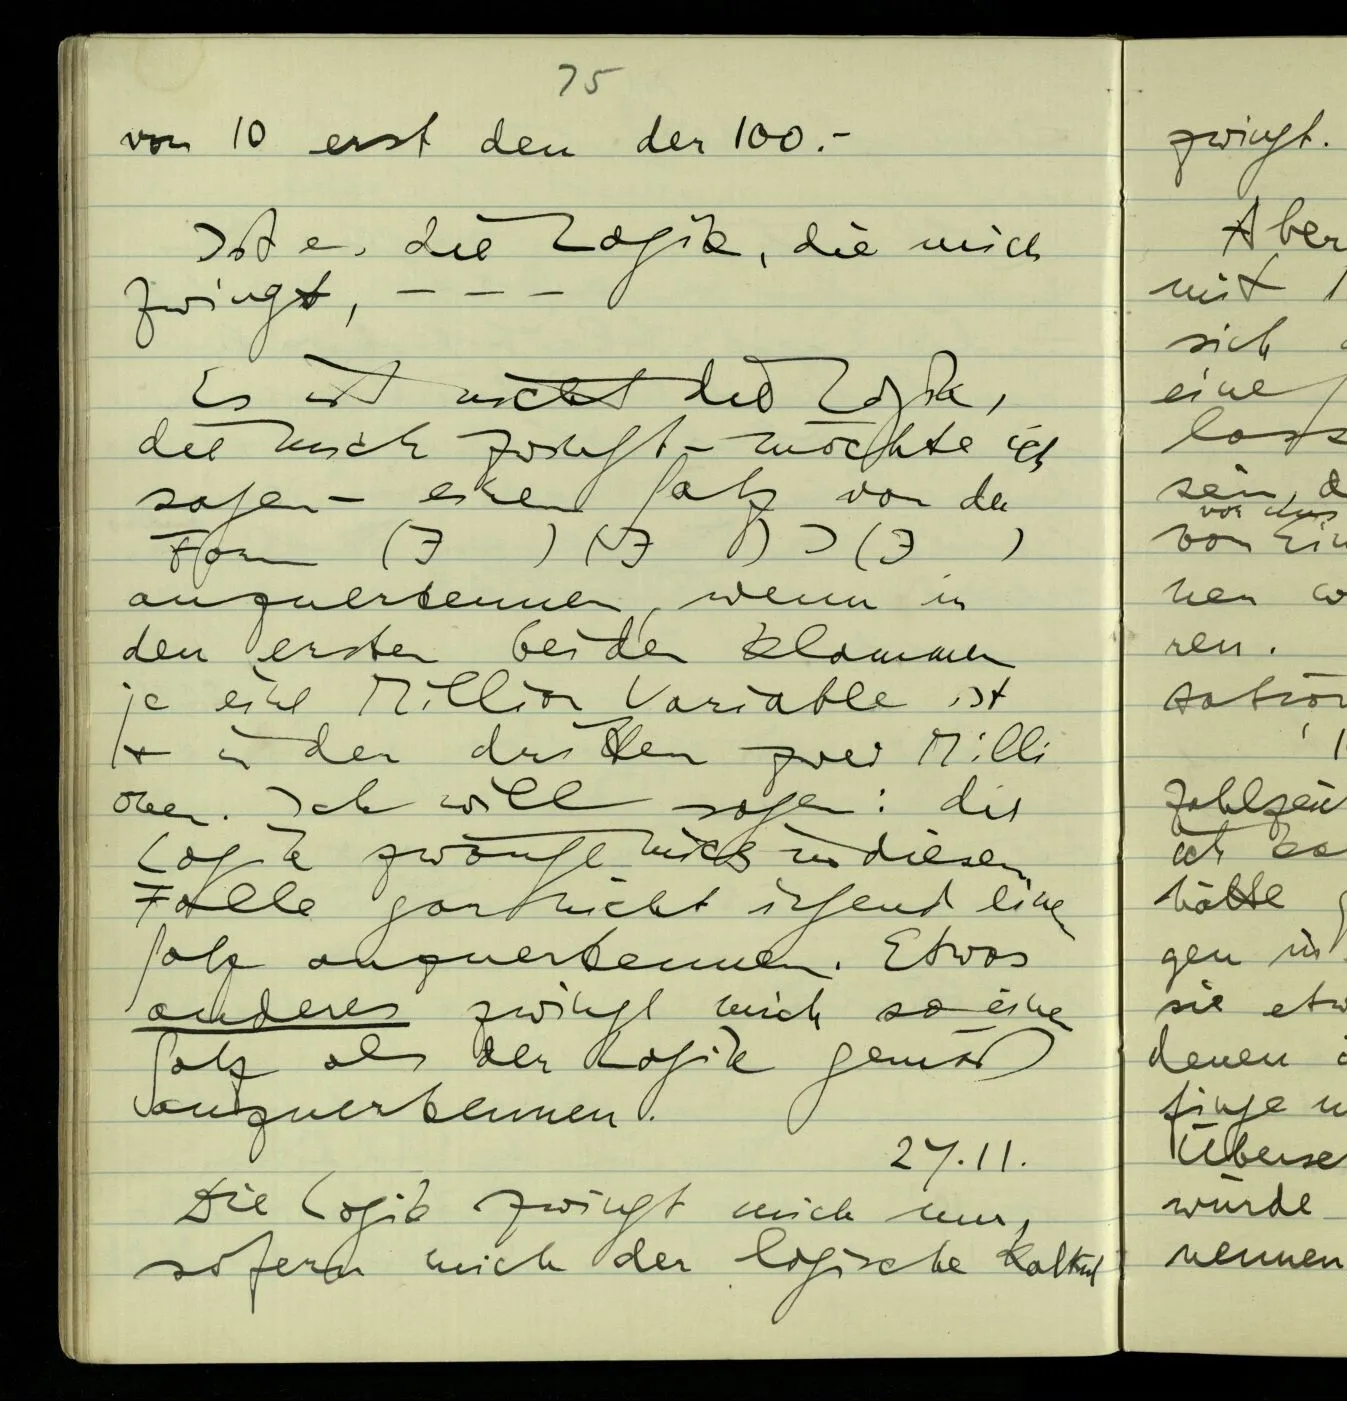 75
von 10 erst den der 100. –
Ist es die Logik, die mich
zwingt, – – –
Es ist nicht die Logik,
die mich zwingt – möchte ich
sagen – einen Satz von der
Form (∃ ) (∃ ) ⊃ (∃ )
anzuerkennen, wenn in
den ersten beiden Klammen
je eine Million Variable ist
& in der dritten zwei Milli
onen. Ich will sagen: die
Logik zwänge mich in diesem
Falle gar nicht irgend einen
Satz anzuerkennen. Etwas
anderes zwingt mich so einen
Satz als der Logik gemäß
anzuerkennen.
27.11.
Die Logik zwingt mich nur,
sofern mich der logische Kalkül
zwingt.
Aber
mit
sich
eine
lass
sein, d
vor
von Ein
nen
ren.
tation
Zahlzei
ich ka
hätte
gen in
sie etw
denen
finge
Überse
würde
nennen